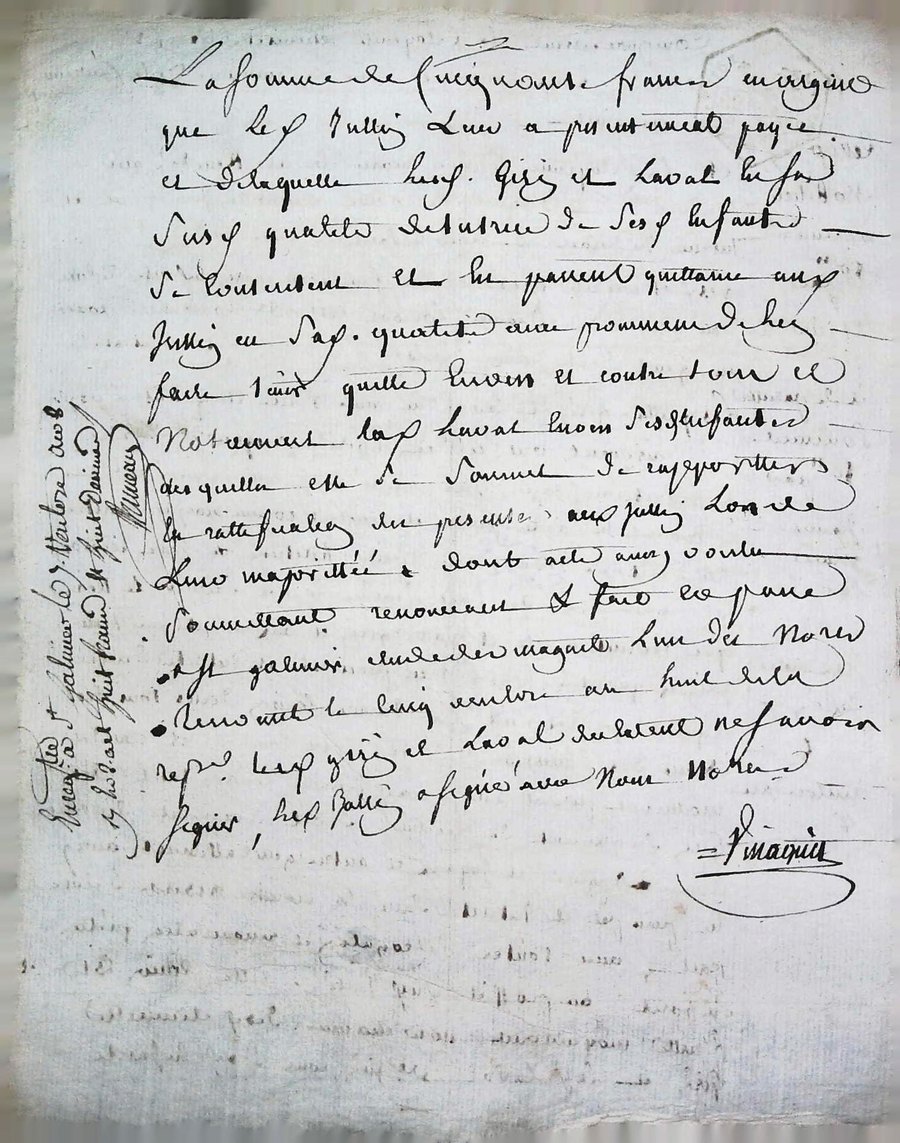 La somme de Cinquante francs en argent
que led Jullien Luc a presentement payée
et de laquelle led. et Laval en sa
susd qualité de tutrice de sesd Enfants
se Contentent et en passent quittance aux
Jullien en sad. qualité avec promesse de
faire tenir quitte Envers et contre tous et
Notamment lad Laval Envers sesd Enfants
desquelles elle se soumet de rapporter
la rattification des presentes aux Jullien Lors de
Leur majorittée dont acte ainsy voulu
soumettant renonceant & fait et passé
a St galmier etude de magnet L'un des Nores
recevant le Cinq ventose an huit de la
repe. lesd et Laval declarent ne savoir
signer, led a signé avec Nous Nores
= Vmagnet
Enregtré a St galmier le 7 Ventose an 8.